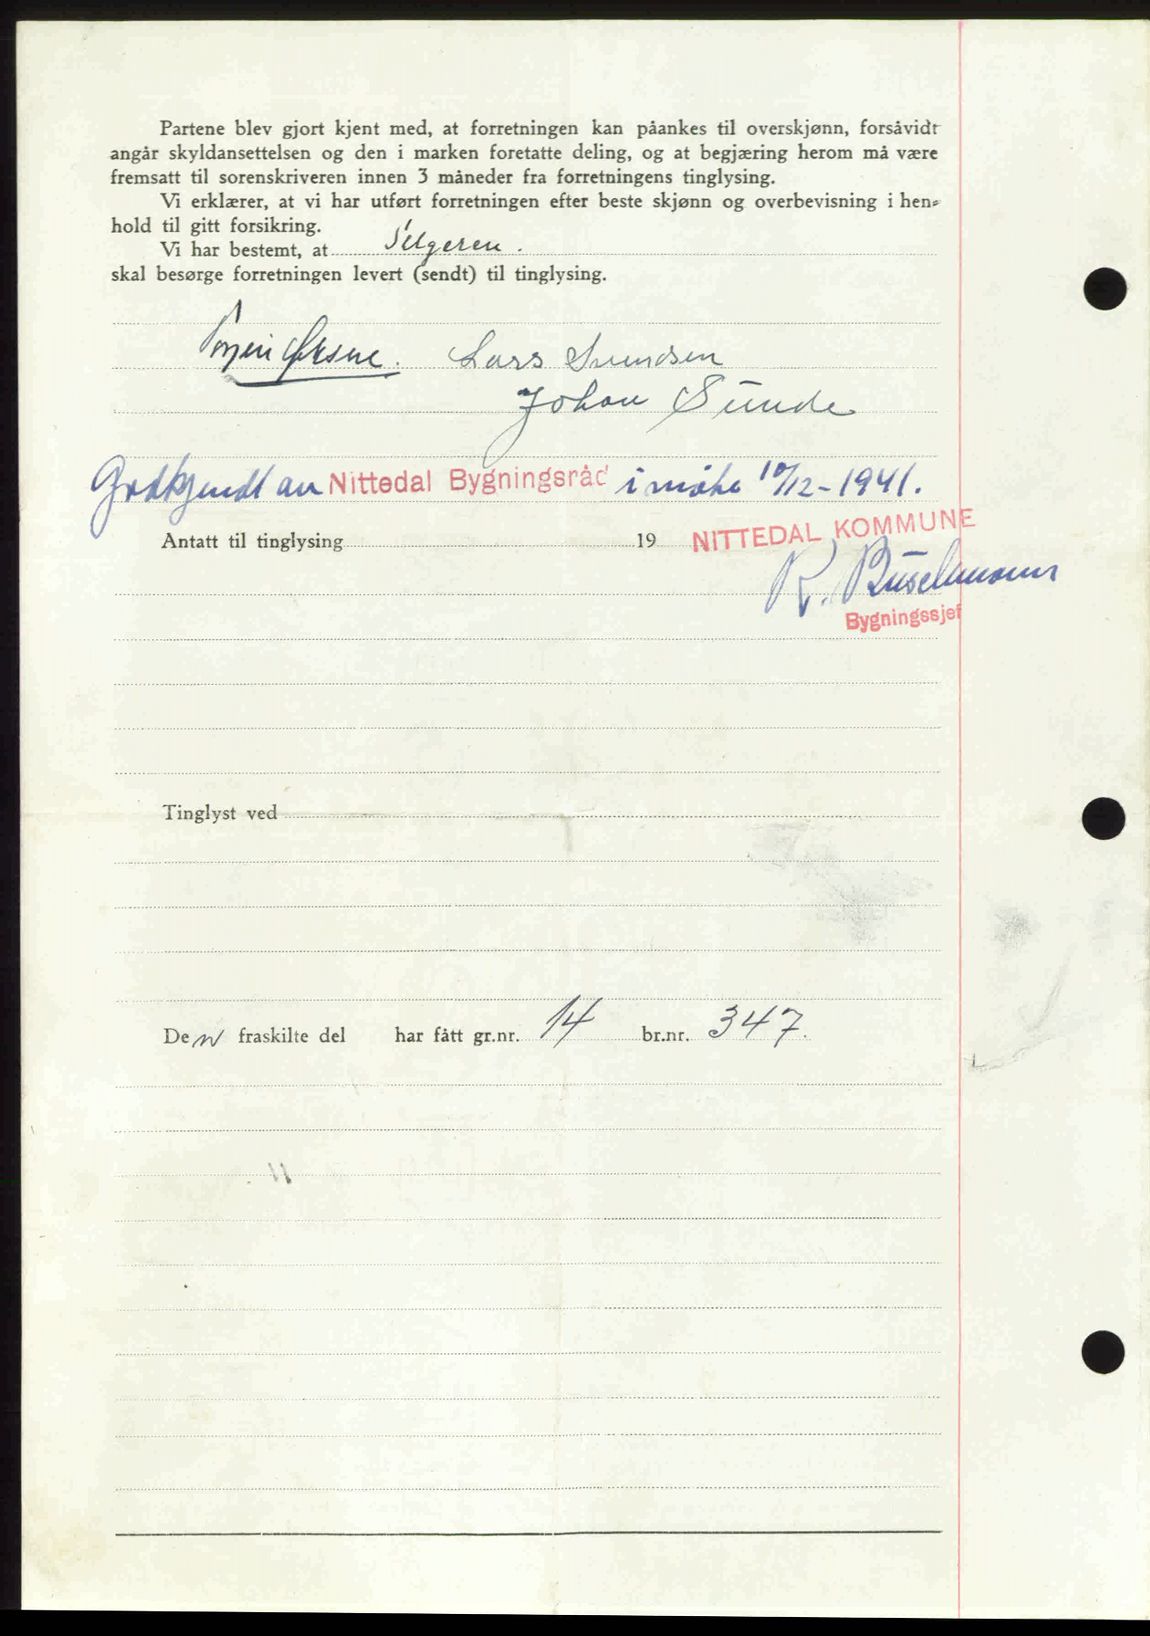 Partene blev gjort kjent med, at forretningen kan påankes til overskjønn, forsåvidt
angår skyldansettelsen og den i marken foretatte deling, og at begjæring herom må være
fremsatt til sorenskriveren innen 3 måneder fra forretningens tinglysing.
Vi erklærer, at vi har utført forretningen efter beste skjønn og overbevisning i hen-
hold til gitt forsikring.
Vi har bestemt, at Selgeren.
skal besørge forretningen levert (sendt) til tinglysing.
Lars Svendsen
Johan Sunde
Godkjendt av Nittedal Bygningsråd i møte 10/12-1941.
Antatt til tinglysing 19
NITTEDAL KOMMUNE
R. Buschmann
Bygningssjef
Tinglyst ved
Den fraskilte del har fått gr.nr. 14 br.nr. 347.